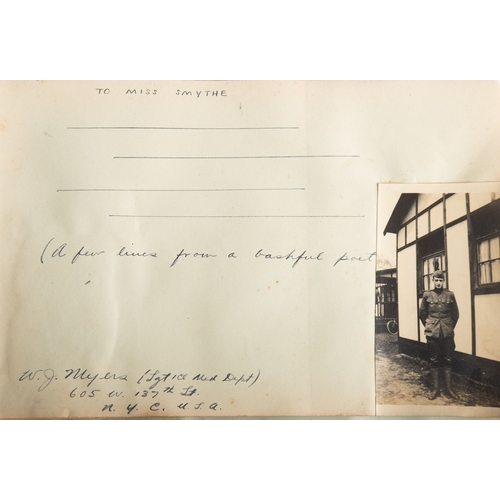 TO MISS SMYTHE
(A few lines from a bashful poet
W. J. Myers (Sgt 1Cl Med Dept)
605 W. 137th St.
N. Y. C. U.S.A.